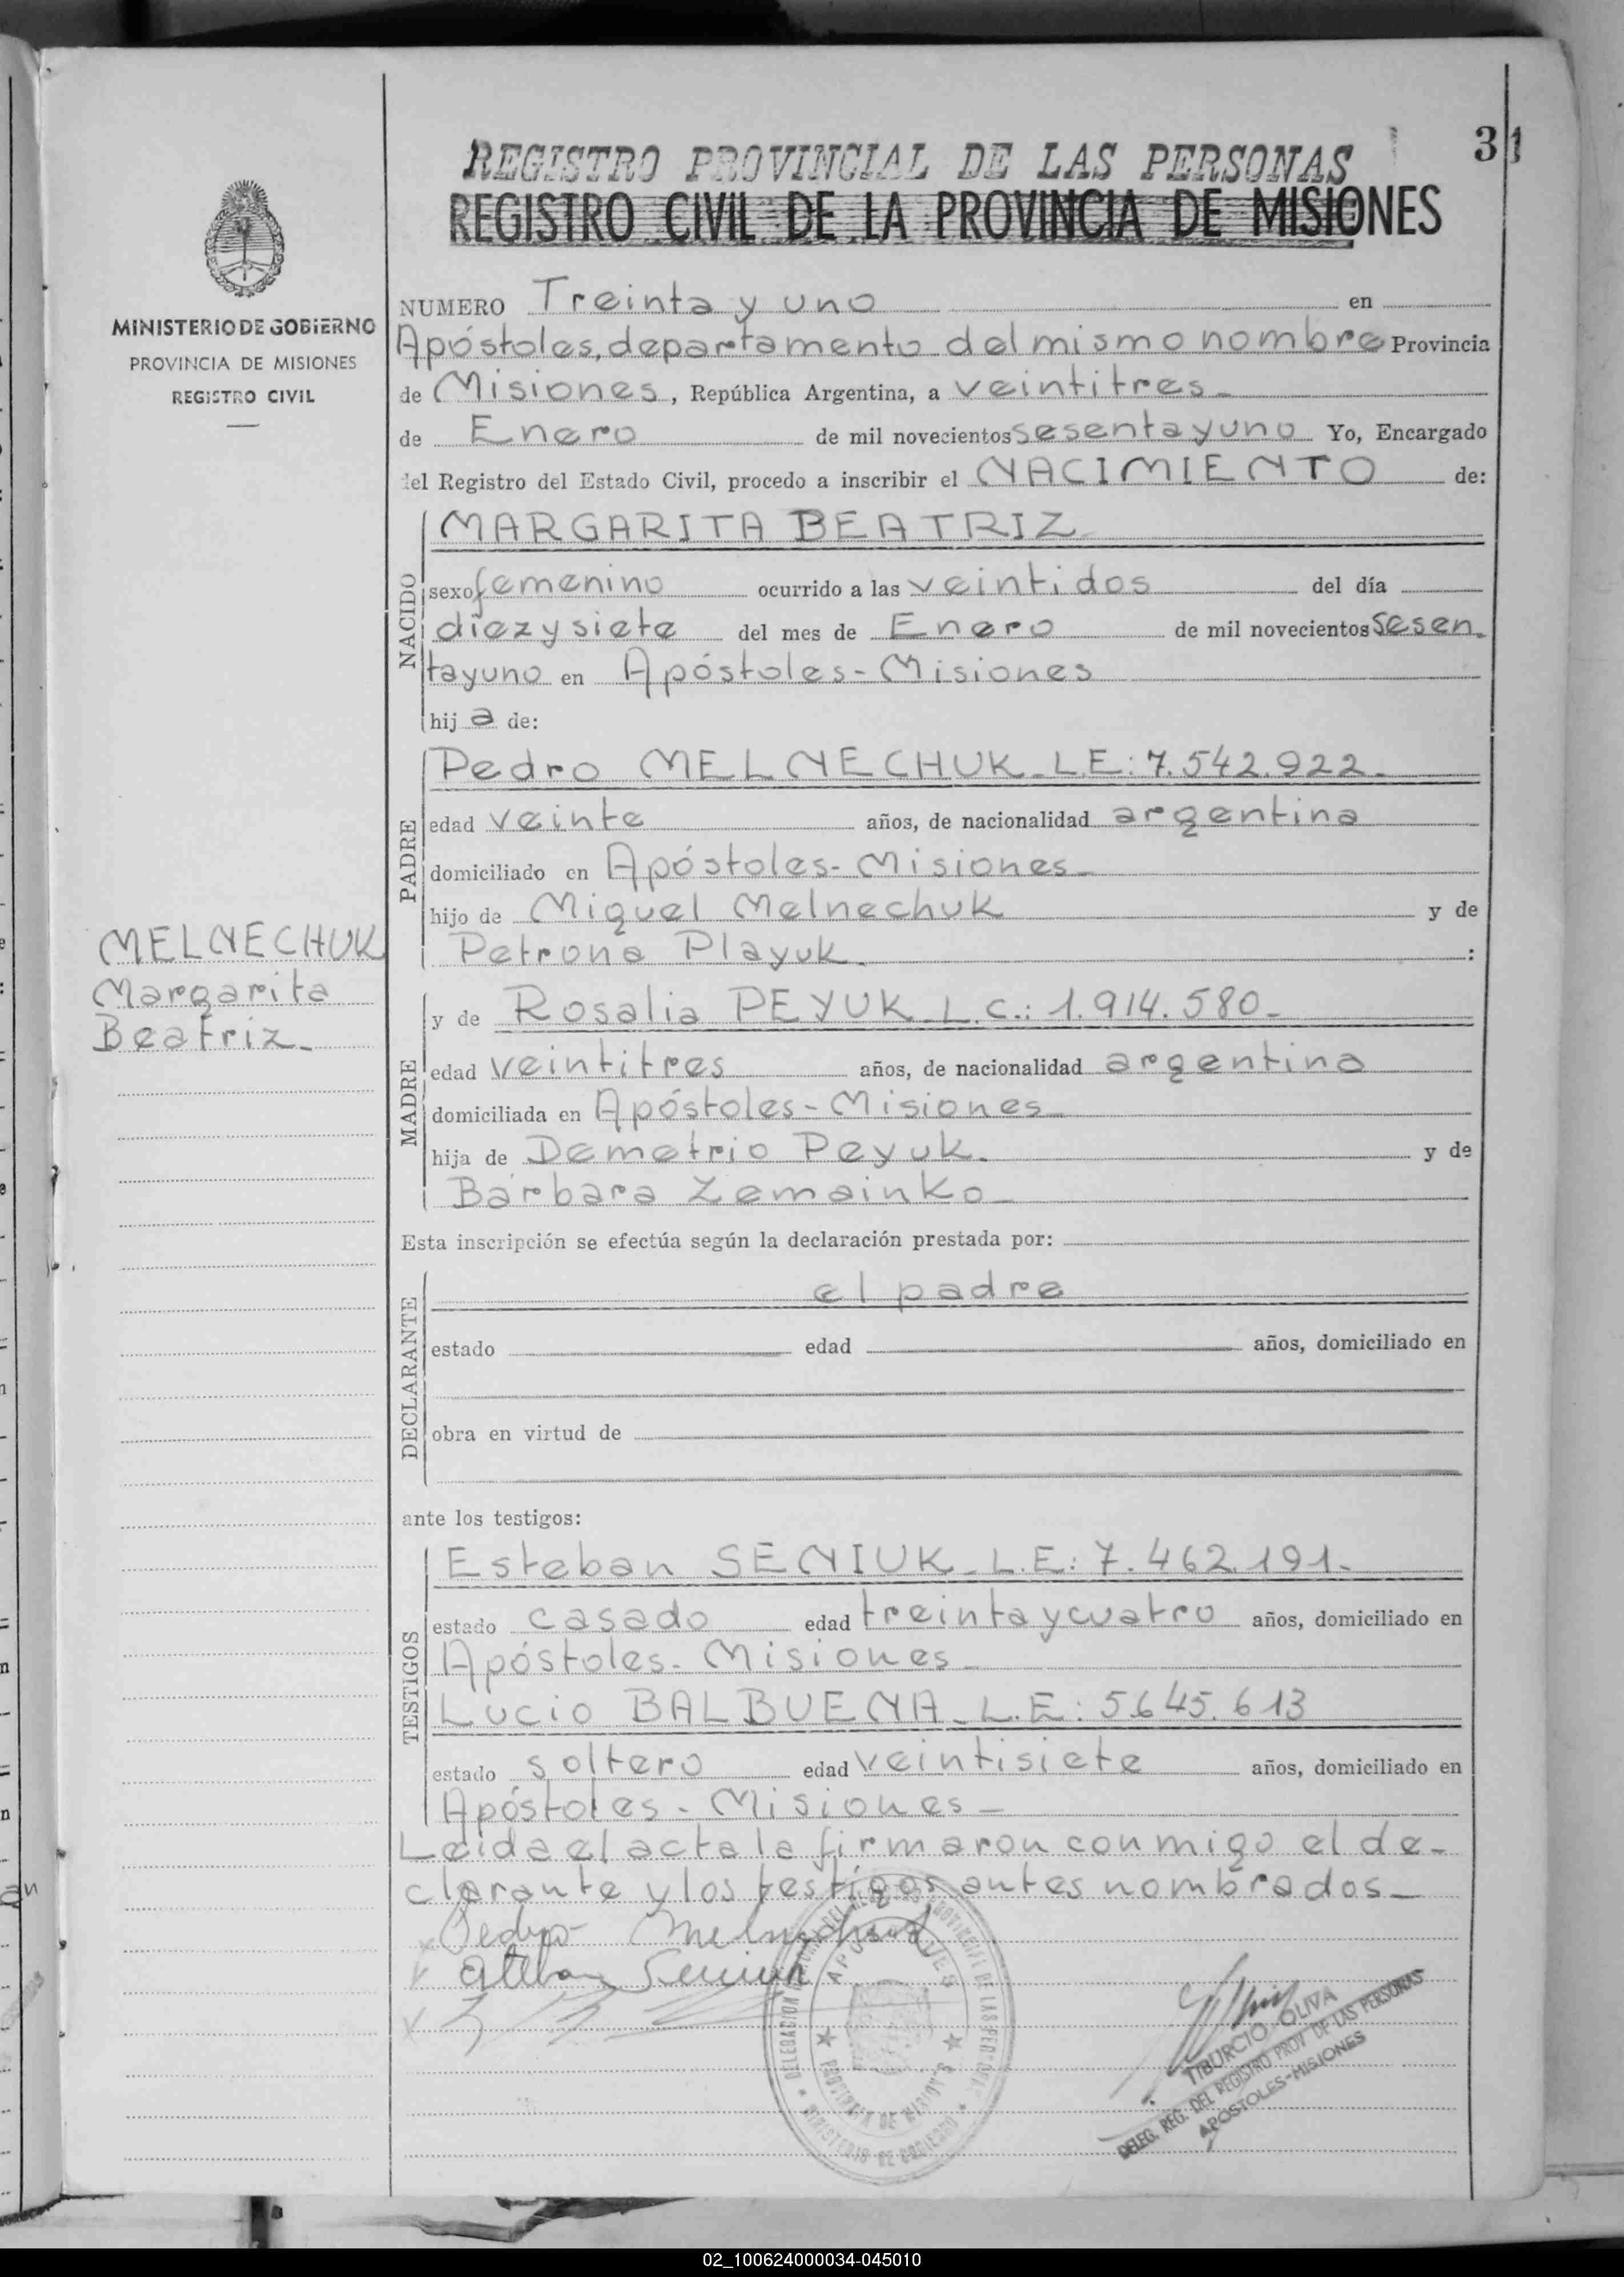 31
REGISTRO PROVINCIAL DE LAS PERSONAS
REGISTRO CIVIL DE LA PROVINCIA DE MISIONES
MINISTERIO DE GOBIERNO
PROVINCIA DE MISIONES
REGISTRO CIVIL
NUMERO Treinta y uno en
Apóstoles, departamento del mismo nombre Provincia
de Misiones, República Argentina, a veintitres
de Enero de mil novecientos sesentayuno Yo, Encargado
del Registro del Estado Civil, procedo a inscribir el NACIMIENTO de:
NACIDO
MARGARITA BEATRIZ
sexo femenino ocurrido a las veintidos del día
diezysiete del mes de Enero de mil novecientos Sesen-
tayuno en Apóstoles-Misiones
hij a de:
PADRE
Pedro MELNECHUK_L.E: 7.542.922.
edad veinte años, de nacionalidad argentina
domiciliado en Apóstoles-Misiones
hijo de Miguel Melnechuk y de
Petrona Playuk. :
MELNECHUK
Margarita
Beatriz_
MADRE
y de Rosalia PEYUK_L.C.: 1.914.580_
edad veintitres años, de nacionalidad argentina
domiciliada en Apóstoles-Misiones
hija de Demetrio Peyuk. y de
Bárbara Zemainko_
Esta inscripción se efectúa según la declaración prestada por:
DECLARANTE
el padre
estado edad años, domiciliado en
obra en virtud de
ante los testigos:
TESTIGOS
Esteban SENIUK_L.E: 7.462.191.
estado casado edad treintaycuatro años, domiciliado en
Apóstoles-Misiones_
Lucio BALBUENA_L.E: 5.645.613
estado soltero edad veintisiete años, domiciliado en
Apóstoles-Misiones_
Leida el acta la firmaron conmigo el de-
clarante y los testigos antes nombrados_
Pedro Melnechuk
Esteban Seniuk
APOSTOLES
PROVINCIA DE MISIONES
MINISTERIO DE GOBIERNO
TIBURCIO OLIVA
DELEG. REG. DEL REGISTRO PROV DE LAS PERSONAS
APOSTOLES-MISIONES
02_100624000034-045010